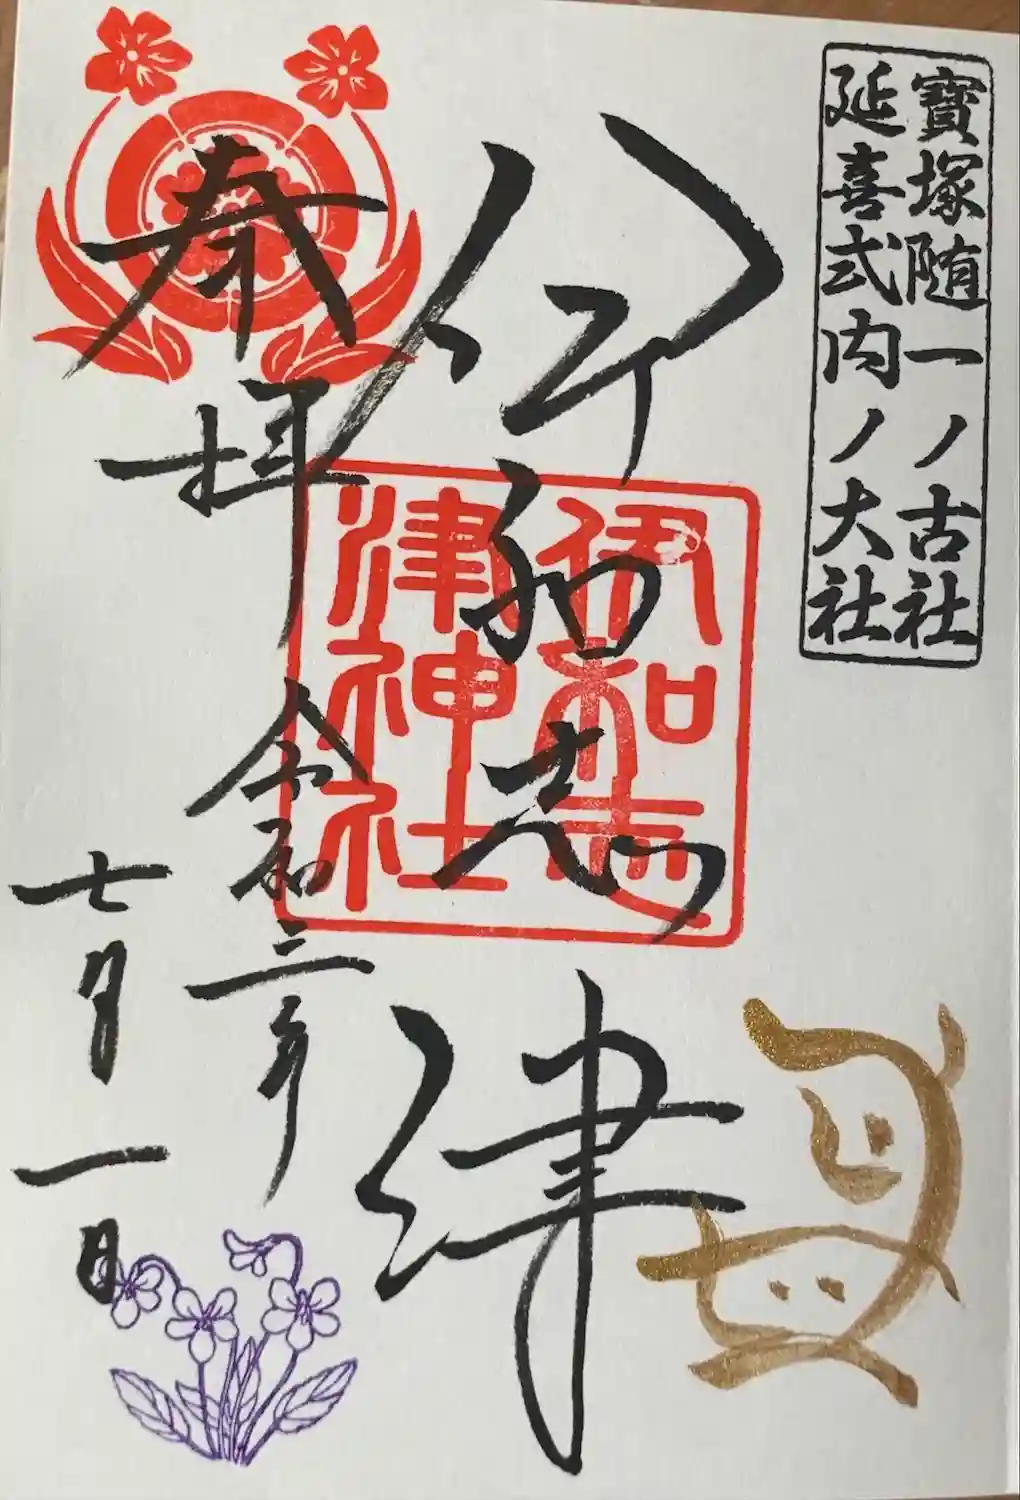 寶塚随一ノ古社
延喜式内ノ大社
伊和志津
伊和志
津神社
奉拝
令和三年
七月一日